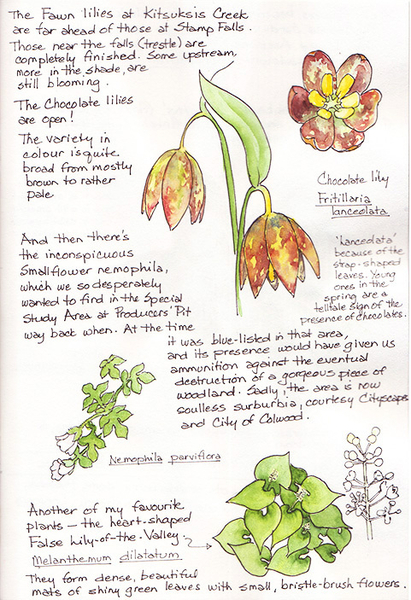 The Fawn lilies at Kitsuksis Creek
are far ahead of those at Stamp Falls.
Those near the falls (trestle) are
completely finished. Some upstream,
more in the shade, are
still blooming.
The Chocolate lilies
are open!
The variety in
colour is quite
broad from mostly
brown to rather
pale
Chocolate lily
Fritillaria
lanceolata
'lanceolata'
because of the
strap-shaped
leaves. Young
ones in the
spring are a
telltale sign of the
presence of Chocolates.
And then there's
the inconspicuous
Smallflower nemophila,
which we so desperately
wanted to find in the Special
Study Area at Producers' Pit
way back when. At the time
it was blue-listed in that area,
and its presence would have given us
ammunition against the eventual
destruction of a gorgeous piece of
woodland. Sadly, the area is now
soulless surburbia, courtesy Cityscapes
and City of Colwood.
Nemophila parviflora
Another of my favourite
plants — the heart-shaped
False Lily-of-the-Valley.
Melanthemum dilatatum
They form dense, beautiful
mats of shiny green leaves with small, bristle-brush flowers.